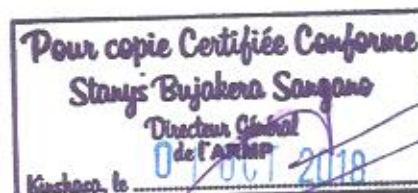 Pour copie Certifiée Conforme
Stanys Bujakera Sangano
Directeur Général
de l'ARMP
Kinshasa, le 01 OCT 2018